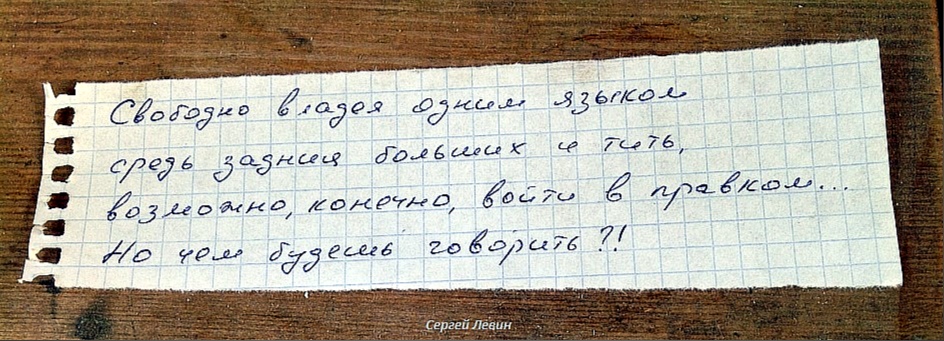 Свободно владея одним языком
средь задниц больших и тить,
возможно, конечно, войти в правком...
Но чем будешь говорить?!
Сергей Левин